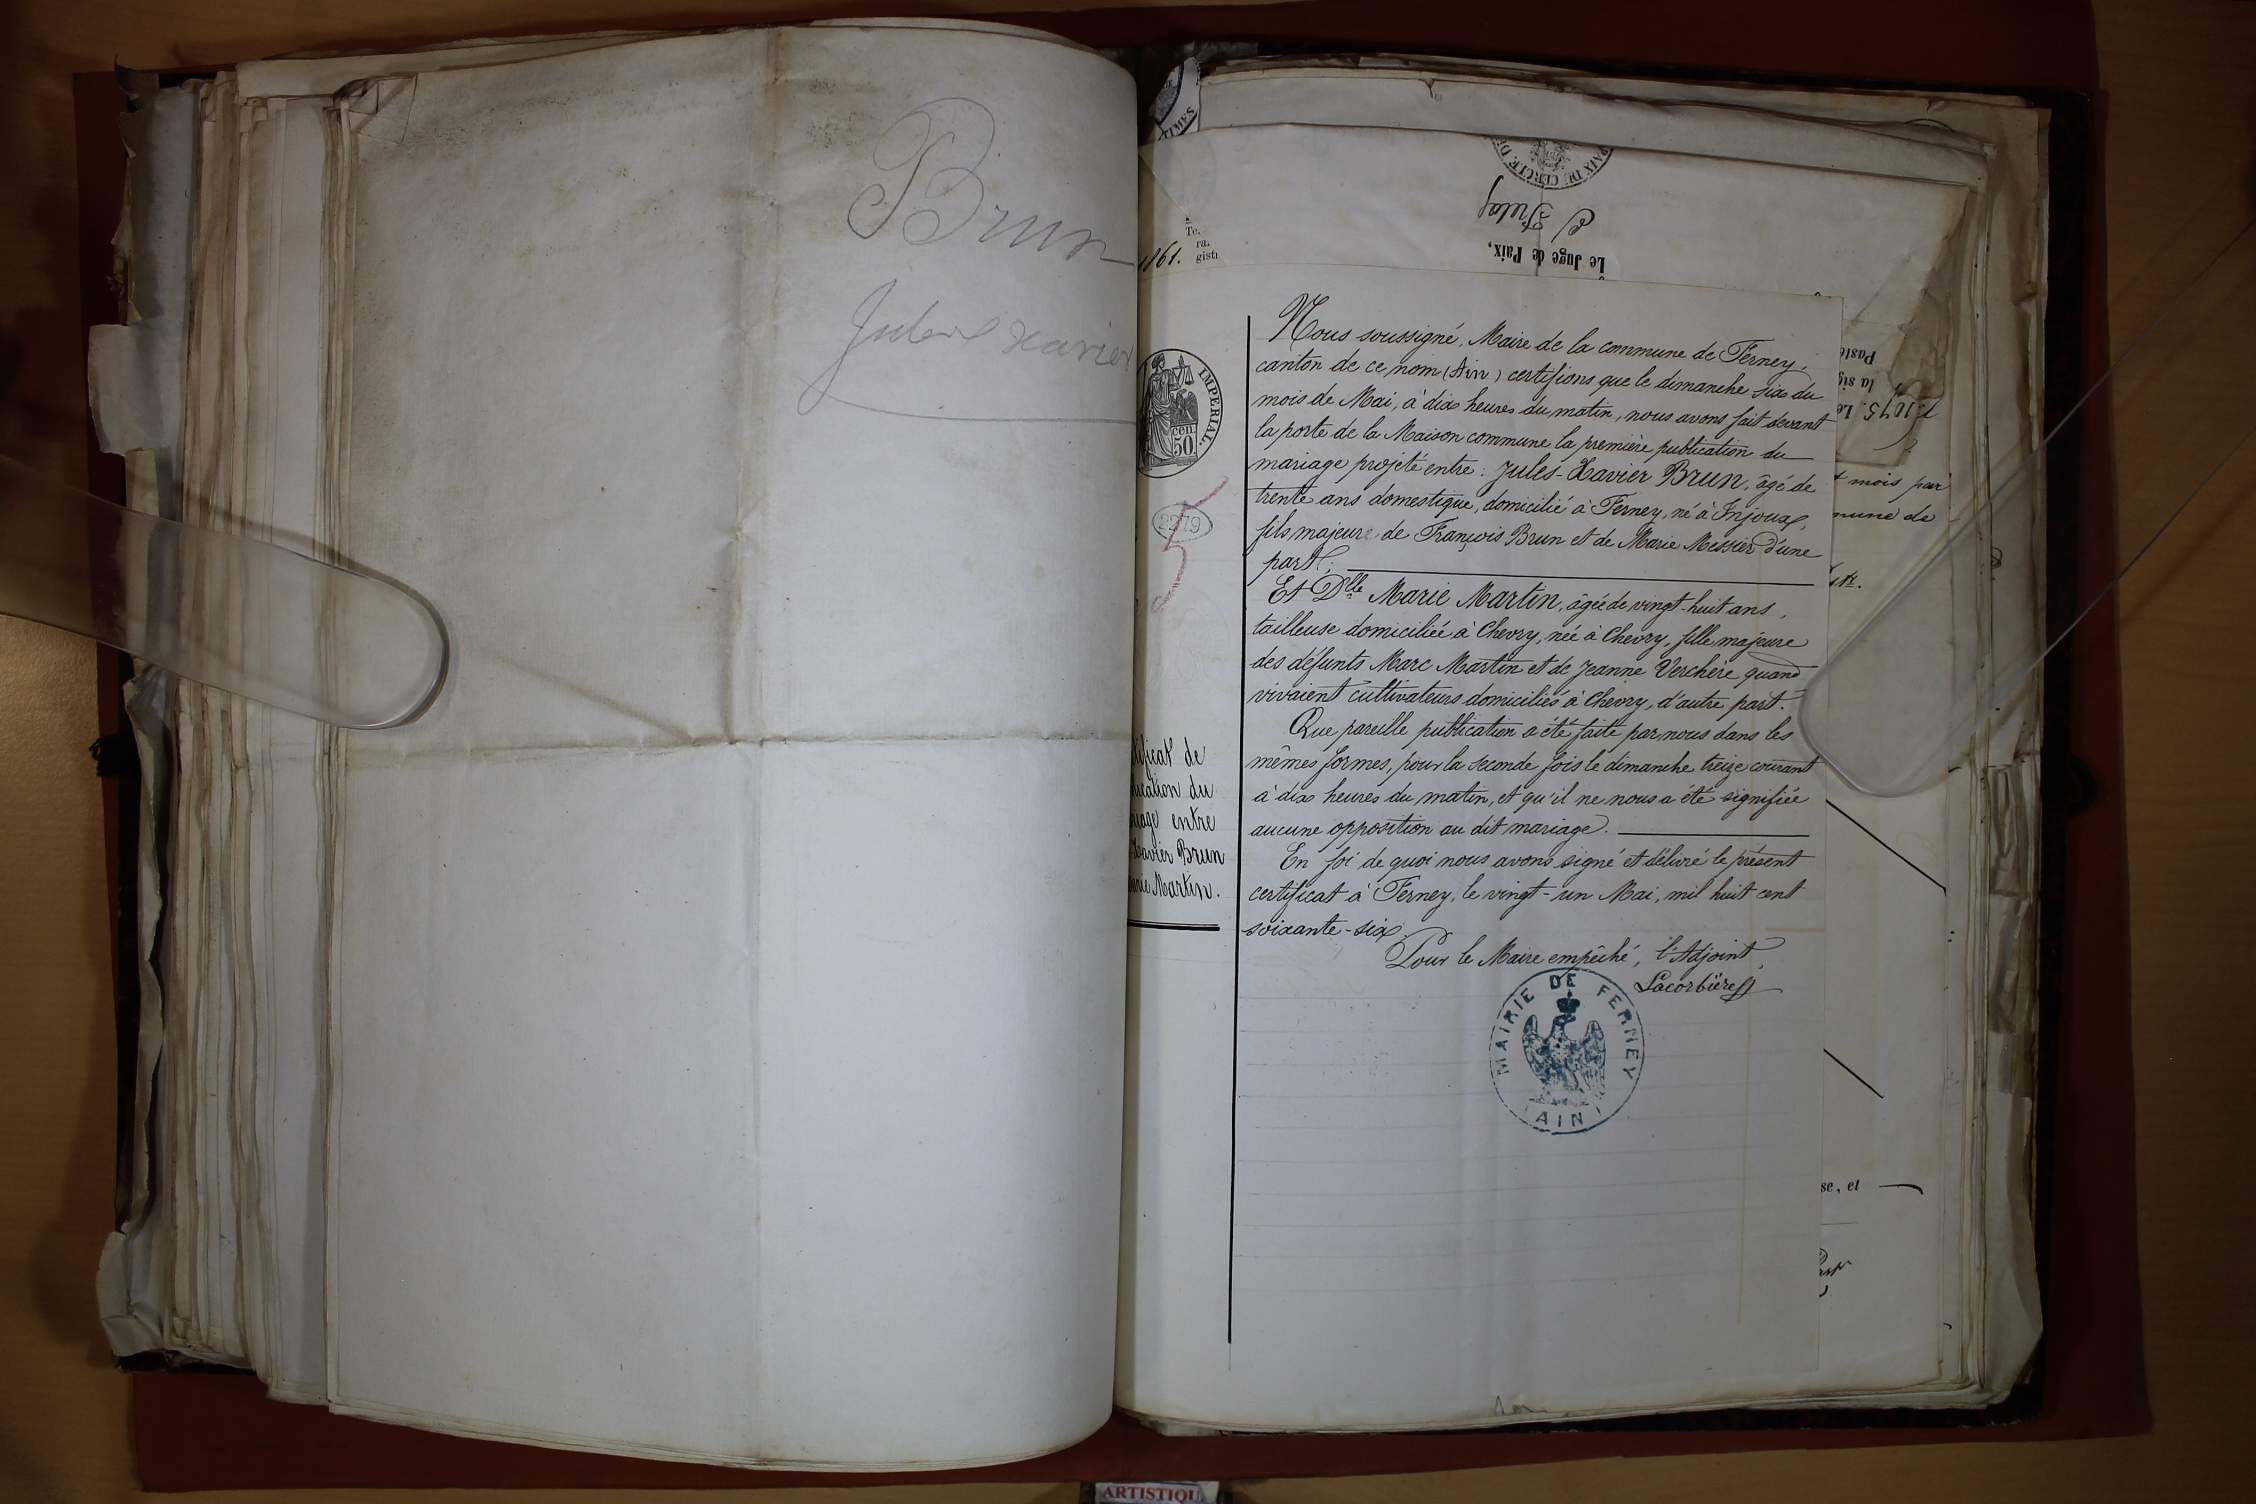 Brun
Jules Xavier
TIMES
1861.
gistr
PAIX DE CERCLE DE
Le Juge de Paix,
IMPERIAL.
50 cen
2279
Nous soussigné, Maire de la commune de Ferney,
canton de ce nom (Ain) certifions que le dimanche six du
mois de Mai, à dix heures du matin, nous avons fait devant
la porte de la Maison commune la première publication du
mariage projeté entre : Jules-Xavier Brun, âgé de
trente ans domestique, domicilié à Ferney, né à Injoux,
fils majeur de François Brun et de Marie Messier d'une
part;
Et Dlle Marie Martin, âgée de vingt-huit ans,
tailleuse domiciliée à Chevry, née à Chevry, fille majeure
des défunts Marc Martin et de Jeanne Verchère quand
vivaient cultivateurs domiciliés à Chevry, d'autre part.
Que pareille publication a été faite par nous dans les
mêmes formes, pour la seconde fois le dimanche treize courant
à dix heures du matin, et qu'il ne nous a été signifiée
aucune opposition au dit mariage.
En foi de quoi nous avons signé et délivré le présent
certificat à Ferney, le vingt-un Mai, mil huit cent
soixante-six.
Pour le Maire empêché, l'Adjoint,
Lacorbière
MAIRIE DE FERNEY
AIN
tificat de
lication du
riage entre
Xavier Brun
arie Martin.
Paste
la sig
1075. Le
t mois par
mune de
se, et
ARTISTIQU